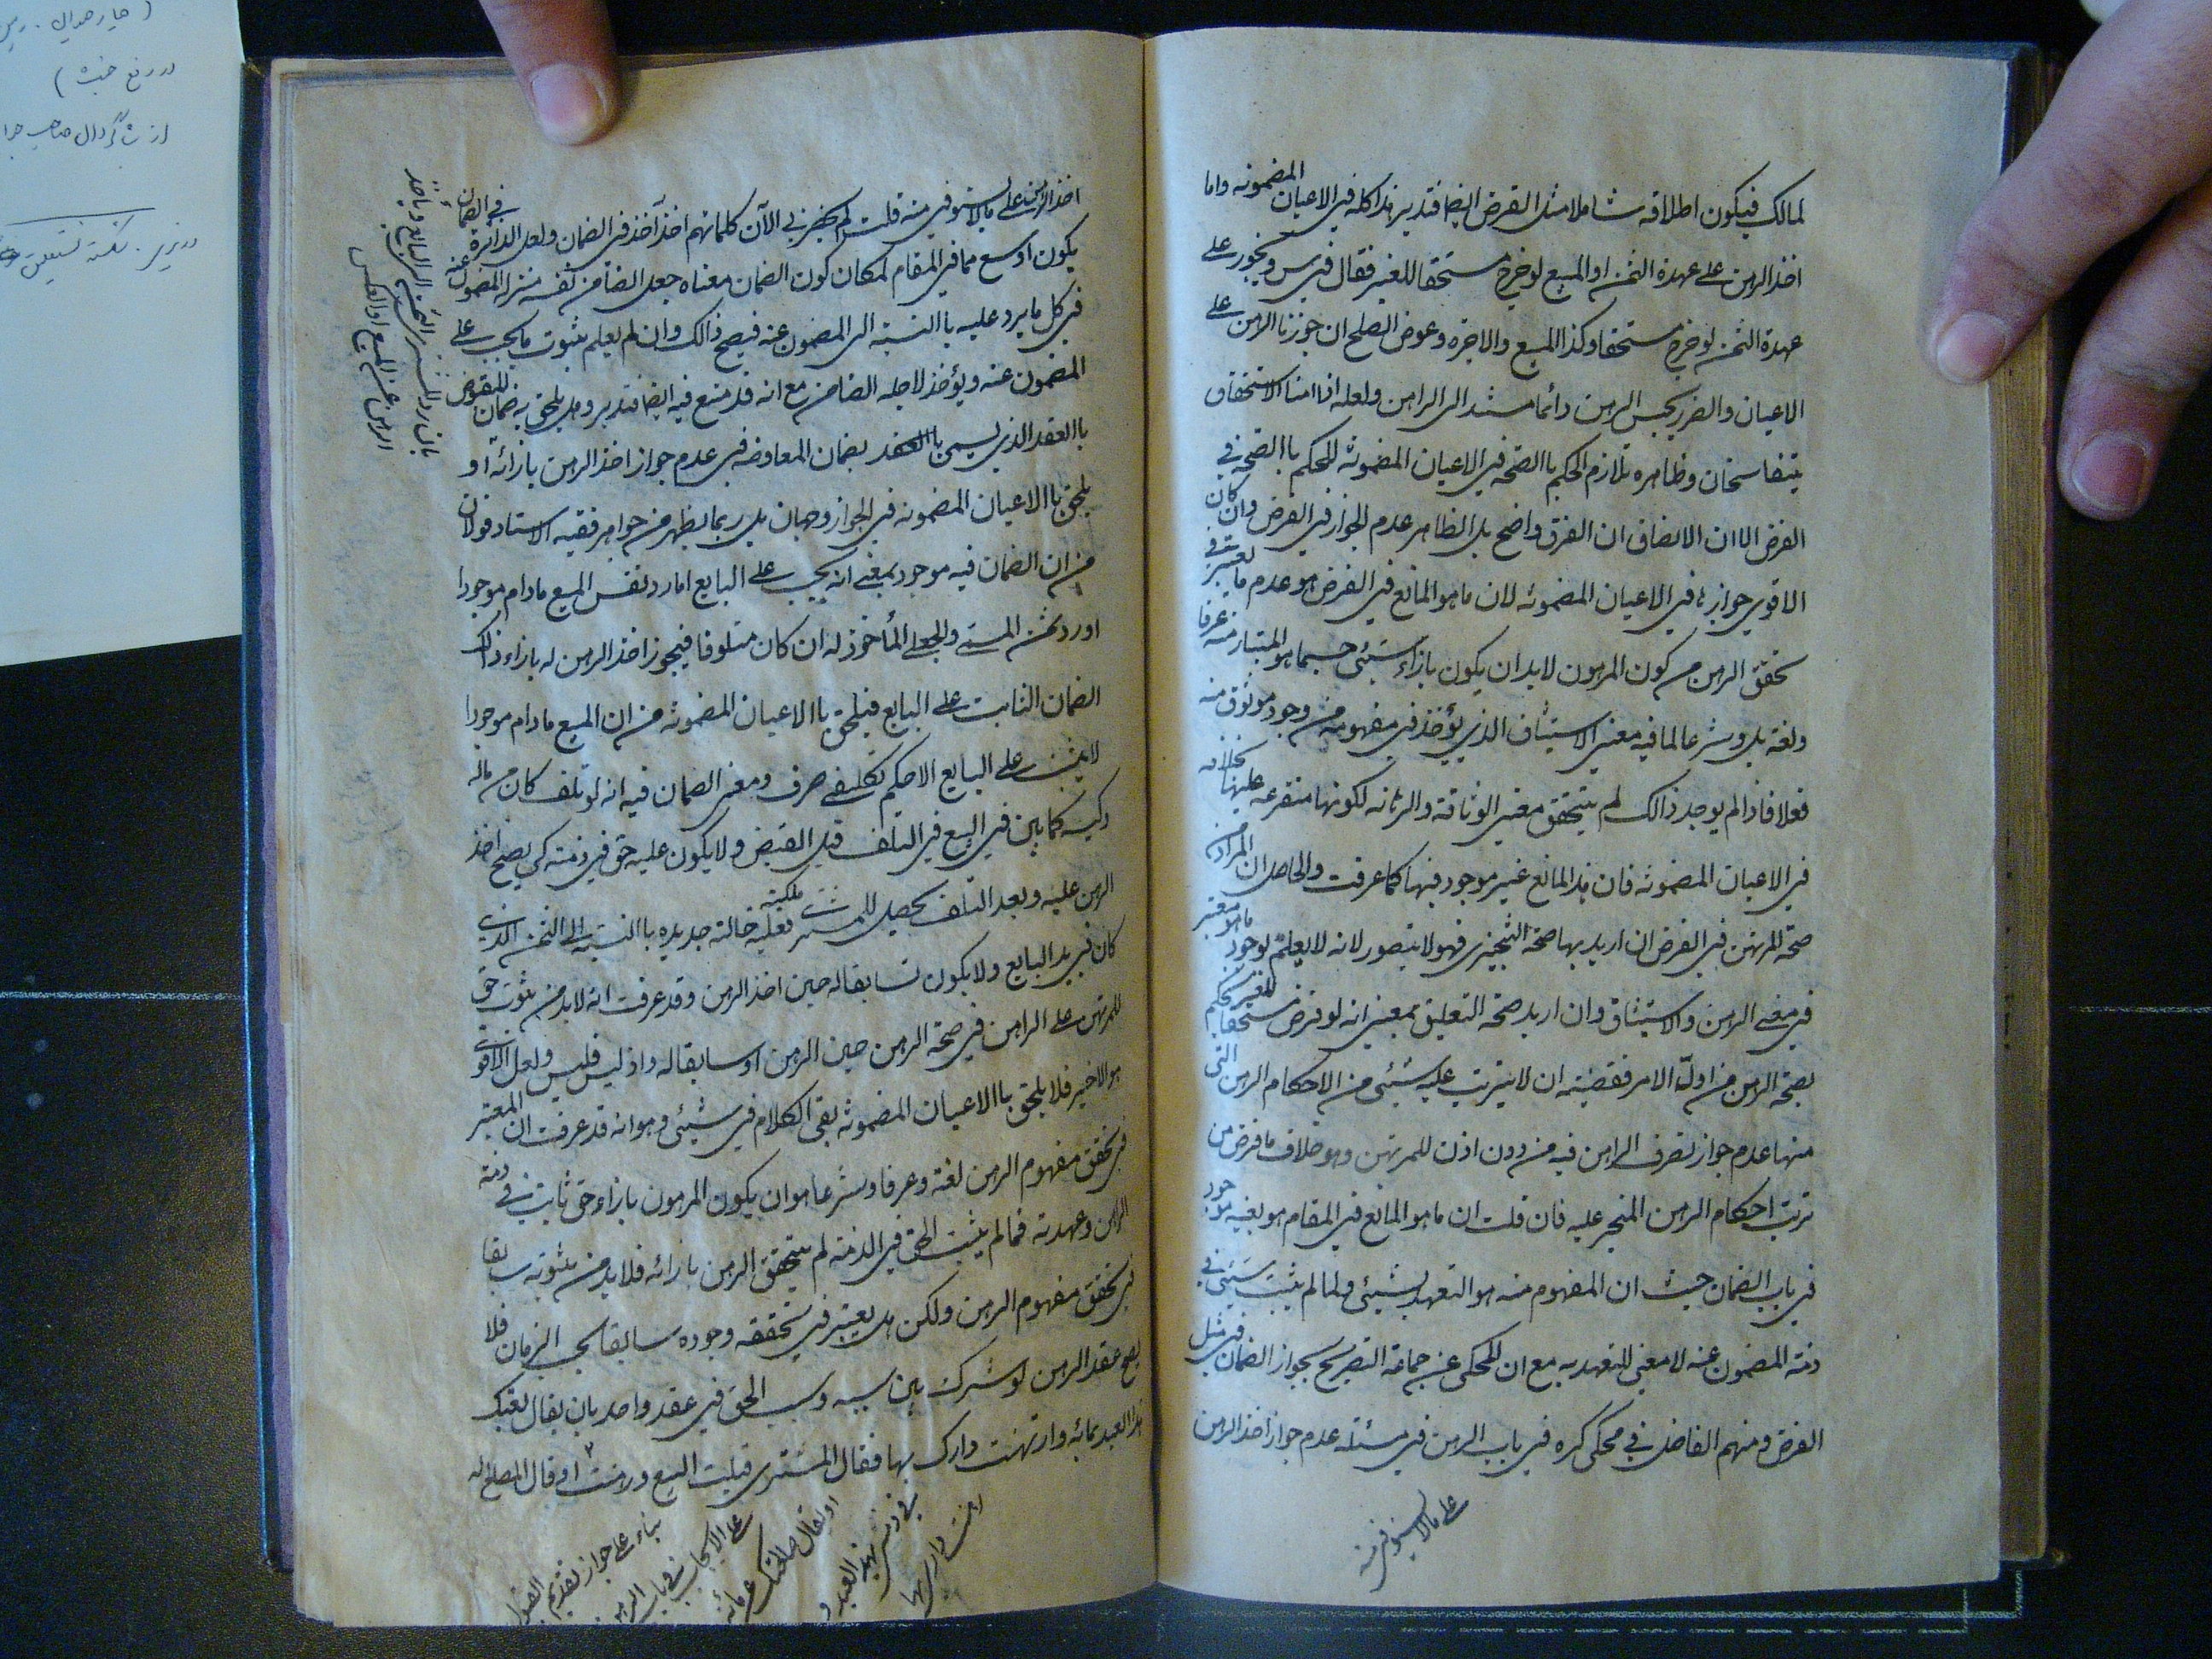 لمالك فيكون اطلاقه شاملا مثل القرض ايضا فتدبر هذا كله في الاعيان المضمونه واما
اخذ الرهن على عهدة الثمن او المبيع لو خرج مستحقا للغير فقال في س ويجوز على
عهدة الثمن لو خرج مستحقا وكذا المبيع والاجره وعوض الصلح ان جوزنا الرهن على
الاعيان والضرر بحبس الرهن دائما مستند الى الراهن ولعله اذا امنا الاستحقاق
يتفاسخان وظاهره تلازم الحكم باالصحه في الاعيان المضمونه للحكم باالصحه في
الفرض الا ان الانصاف ان الفرق واضح بل الظاهر عدم الجواز في الفرض وان كان
الاقوى جوازه في الاعيان المضمونه لان ما هو المانع في الفرض هو عدم ما يعتبر في
تحقق الرهن من كون المرهون لابد ان يكون بازاء شيئى حسبما هو المتبادر منه عرفا
ولغة بل وشرعا لما فيه معنى الاستيثاق الذي يؤخذ في مفهومه من وجود موثوق منه
فعلا فاذا لم يوجد ذالك لم يتحقق معنى الوثاقة والرهانه لكونها متفرعه عليها بخلافه
في الاعيان المضمونه فان هذا المانع غير موجود فيها كما عرفت والحاصل ان المراد من
صحة للرهن في الفرض ان اريد بها صحة التنجيزى فهو لا يتصور لانه لا يعلم لوجود ما هو معتبر
في معنى الرهن والاستيثاق وان اريد صحة التعليق بمعنى انه لو فرض مستحقا للغير نحكم
بصحة الرهن من اول الامر فقضيته ان لا يترتب عليه شيئى من الاحكام الرهن التي
منها عدم جواز تصرف الراهن فيه من دون اذن للمرتهن وهو خلاف ما فرض من
ترتب احكام الرهن المنجز عليه فان قلت ان ما هو المانع في المقام هو بعينه موجود
في باب الضمان حيث ان المفهوم منه هو التعهد بشيئى ولما لم يثبت شيئى في
ذمة المضمون عنه لا معنى للتعهد به مع ان المحكى عن جماعة التصريح بجواز الضمان في مثل
الفرض ومنهم الفاضل في محكى كره في باب الرهن في مسئلة عدم جواز اخذ الرهن
على ما لا يستوفي منه
اخذ الرهن على ما لا يستوفى منه قلت لم يحضرنى الآن كلماتهم اخذ آخذ في الضمان ولعل الدائرة في الضمان
يكون اوسع مما في المقام لمكان كون الضمان معناه جعل الضامن نفسه منزلة المضمون عنه
في كل ما يرد عليه باالنسبة الى المضمون عنه فيصح ذالك وان لم يعلم بثبوت ما يجب على
المضمون عنه ويؤخذ لاجله الضامن مع انه قد منع فيه ايضا فتدبر وهل يلحق به ضمان المقبوض
باالعقد الذي يسمى باالعقد بضمان المعاوضه في عدم جواز اخذ الرهن بازائه او
يلحق باالاعيان المضمونه في الجواز وجهان بل ربما يظهر من جواهر فقيه الاستاد قولان
من ان الضمان فيه موجود بمعنى انه يجب على البايع اما رد نفس المبيع مادام موجودا
او رد ثمن المسمى والجعلى المأخوذ له ان كان متلوفا فيجوز اخذ الرهن له بازاء ذالك
الضمان الثابت على البايع فيلحق باالاعيان المضمونه من ان المبيع مادام موجودا
لا يثبت على البايع الا حكم تكليفى صرف ومعنى الضمان فيه انه لو تلف كان من ماله
كما بين في البيع في التلف قبل القبض ولا يكون عليه حق في ذمته كى يصح اخذ
الرهن عليه وبعد التلف يحصل للمشترى ملكيته فعليه حالته جديده باالنسبة الى الثمن الذي
كان في يد البايع ولا يكون سابقا له حين اخذ الرهن وقد عرفت انه لابد من ثبوت حق
للمرتهن على الراهن في صحة الرهن حين الرهن او سابقا له واذ ليس فليس ولعل الاقوى
هو الاخير فلا يلحق باالاعيان المضمونه بقى الكلام في شيئى وهو انه قد عرفت ان المعتبر
في تحقق مفهوم الرهن لغة وعرفا وشرعا هو ان يكون المرهون بازاء حق ثابت في ذمة
الراهن وعهدته فما لم يثبت الحق في الذمة لم يتحقق الرهن بازائه فلابد من ثبوته سابقا
في تحقق مفهوم الرهن ولكن هل يعتبر في تحققه وجوده سابقا بحسب الزمان فلا
يصح عقد الرهن لو شرك بين سببه وسبب الحق في عقد واحد بان يقال بعتك
هذا العبد بمائه وارتهنت دارك بها فقال المشترى قبلت البيع ورهنت او قال المصلح له
بان رد المشترى الثمن الى البايع وياخذ
الرهن عن المبيع او العكس
رهنت داري بها
في ذمتى بهذا العبد و
او يقال صالحتك عن مائه
على الايجاب في باب الرهن
بناء على جواز تقديم القبول